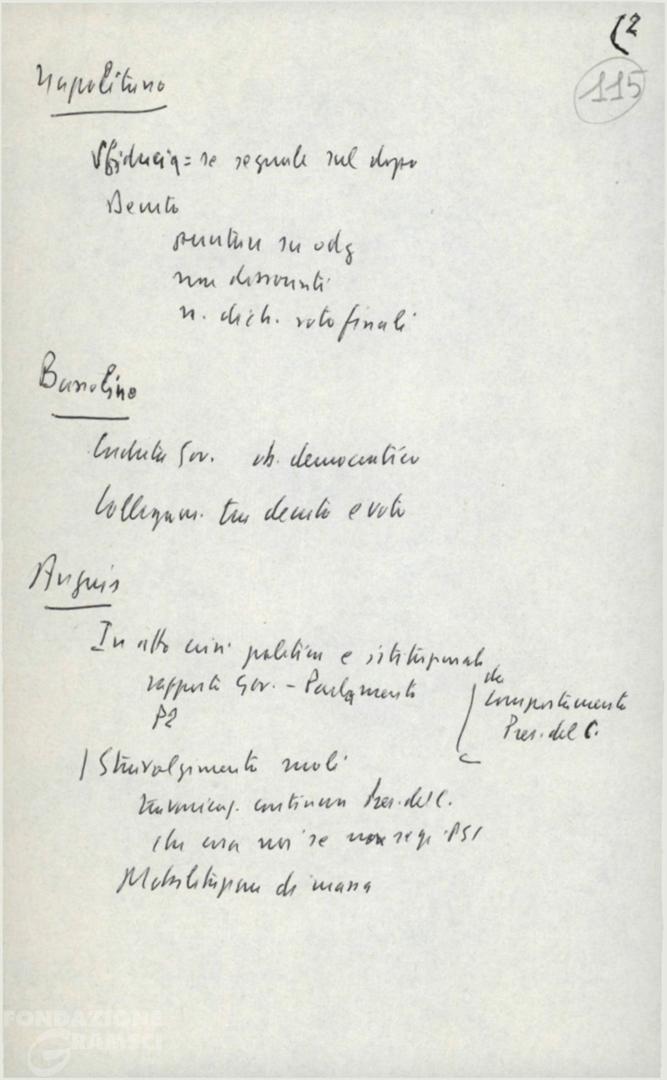 (2
115
Napolitano
Sfiducia = se segnale sul dopo
Decreto
su odg
non dissocianti
n. dich. voto finali
Bassolino
Caduta Gov. ob. democratico
Collegam. tra decreto e voto
Angius
In atto crisi politica e istituzionale
rapporti Gov. - Parlamento
P2
da
comportamento
Pres. del C.
Stravolgimento ruoli
continua Pres. del C.
che cosa noi se non segr. PSI
Mobilitazione di massa
FONDAZIONE
GRAMSCI